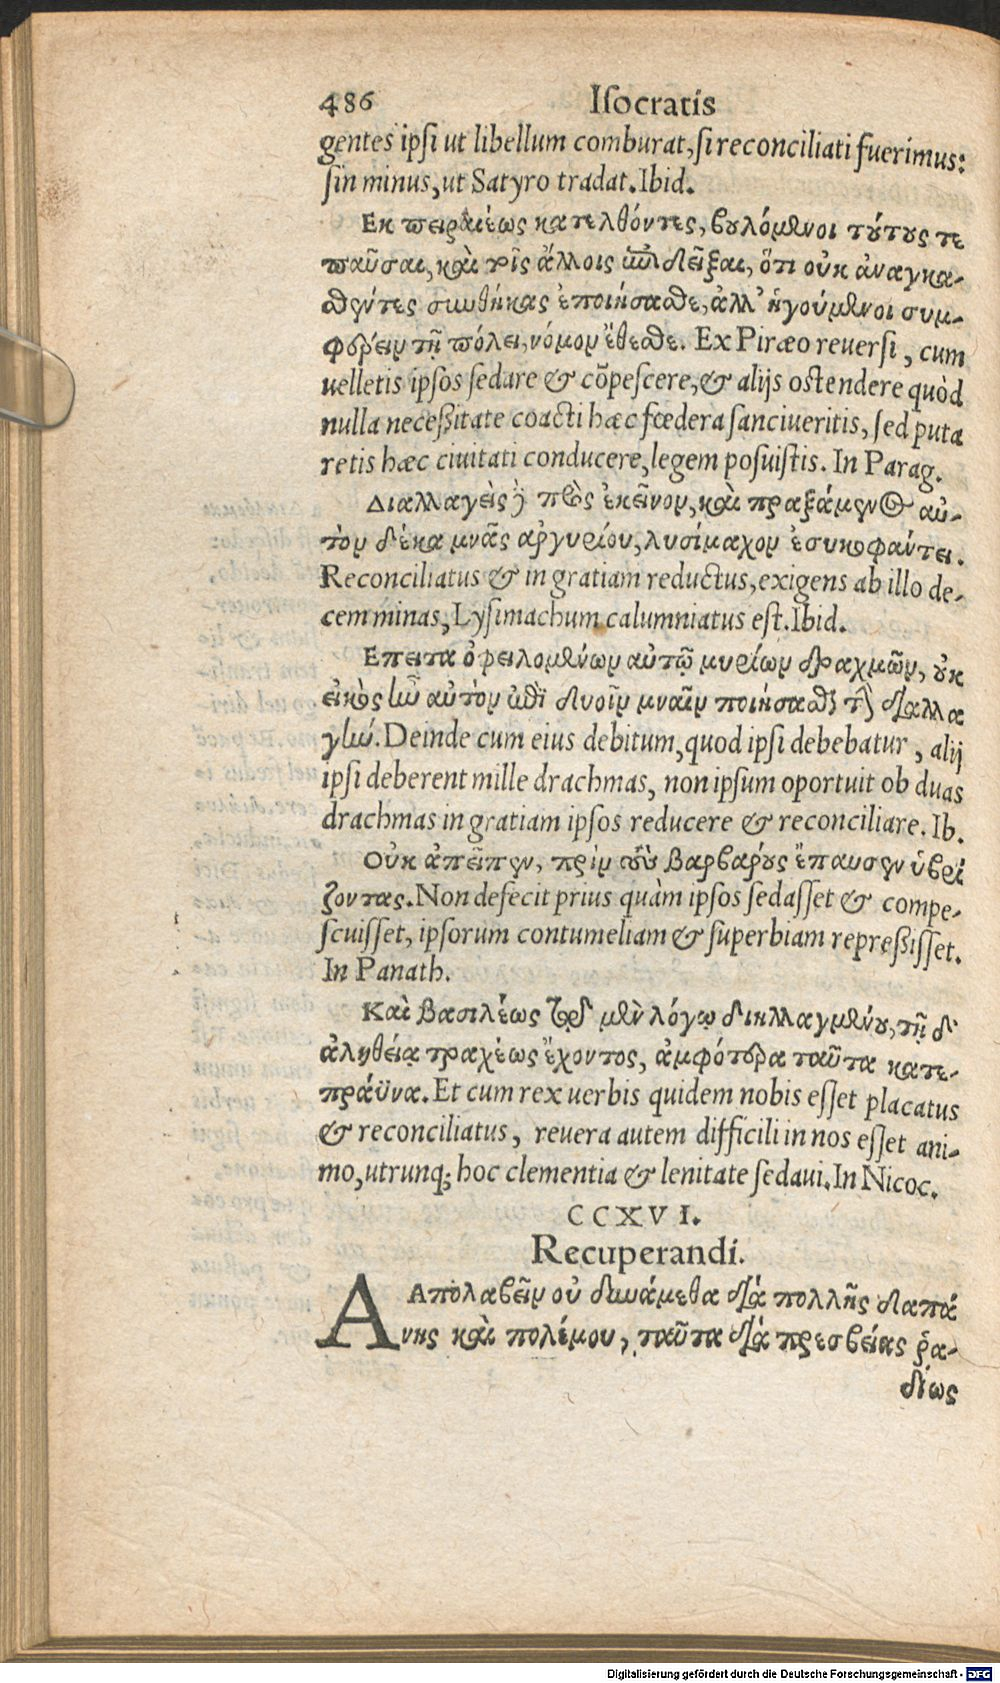 486 Iſocratis
gentes ipſi ut libellum comburat, ſi reconciliati fuerimus:
ſin minus, ut Satyro tradat. Ibid.
Εκ πειραιέως κατελθόντες, βουλόμενοι τούτους τε
παῦσαι, καὶ τοῖς ἄλλοις ἐπιδεῖξαι, ὅτι οὐκ ἀναγκα-
σθέντες συνθήκας ἐποιήσασθε, ἀλλ' ἡγούμενοι συμ-
φέρειν τῇ πόλει, νόμον ἔθεσθε. Ex Piræo reuerſi, cum
uelletis ipſos ſedare & cōpeſcere, & alijs oſtendere quòd
nulla neceßitate coacti hæc fœdera ſanciueritis, ſed puta
retis hæc ciuitati conducere, legem poſuiſtis. In Parag.
Διαλλαγεὶς δὲ πρὸς ἐκεῖνον, καὶ πραξάμενος αὐ-
τὸν δέκα μνᾶς ἀργυρίου, λυσίμαχον ἐσυκοφάντει.
Reconciliatus & in gratiam reductus, exigens ab illo de-
cem minas, Lyſimachum calumniatus eſt. Ibid.
Επειτα ὀφειλομένων αὐτῷ μυρίων δραχμῶν, οὐκ
εἰκὸς ἦν αὐτὸν ἐπὶ δυοῖν μναῖν ποιήσασθαι τὴν διαλλα
γήν. Deinde cum eius debitum, quod ipſi debebatur, alij
ipſi deberent mille drachmas, non ipſum oportuit ob duas
drachmas in gratiam ipſos reducere & reconciliare. Ib.
Οὐκ ἀπεῖπεν, πρὶν τοὺς βαρβάρους ἔπαυσεν ὑβρί
ζοντας. Non defecit prius quàm ipſos ſedaſſet & compe-
ſcuiſſet, ipſorum contumeliam & ſuperbiam repreßiſſet.
In Panath.
Καὶ βασιλέως τῷ μὲν λόγῳ διηλλαγμένου, τῇ δ'
ἀληθείᾳ τραχέως ἔχοντος, ἀμφότερα ταῦτα κατε-
πράϋνα. Et cum rex uerbis quidem nobis eſſet placatus
& reconciliatus, reuera autem difficili in nos eſſet ani-
mo, utrunq; hoc clementia & lenitate ſedaui. In Nicoc.
CCXVI.
Recuperandi.
ΑΑπολαβεῖν οὐ δυνάμεθα διὰ πολλῆς δαπά
νης καὶ πολέμου, ταῦτα διὰ πρεσβείας ῥα-
δίως
Digitalisierung gefördert durch die Deutsche Forschungsgemeinschaft - DFG